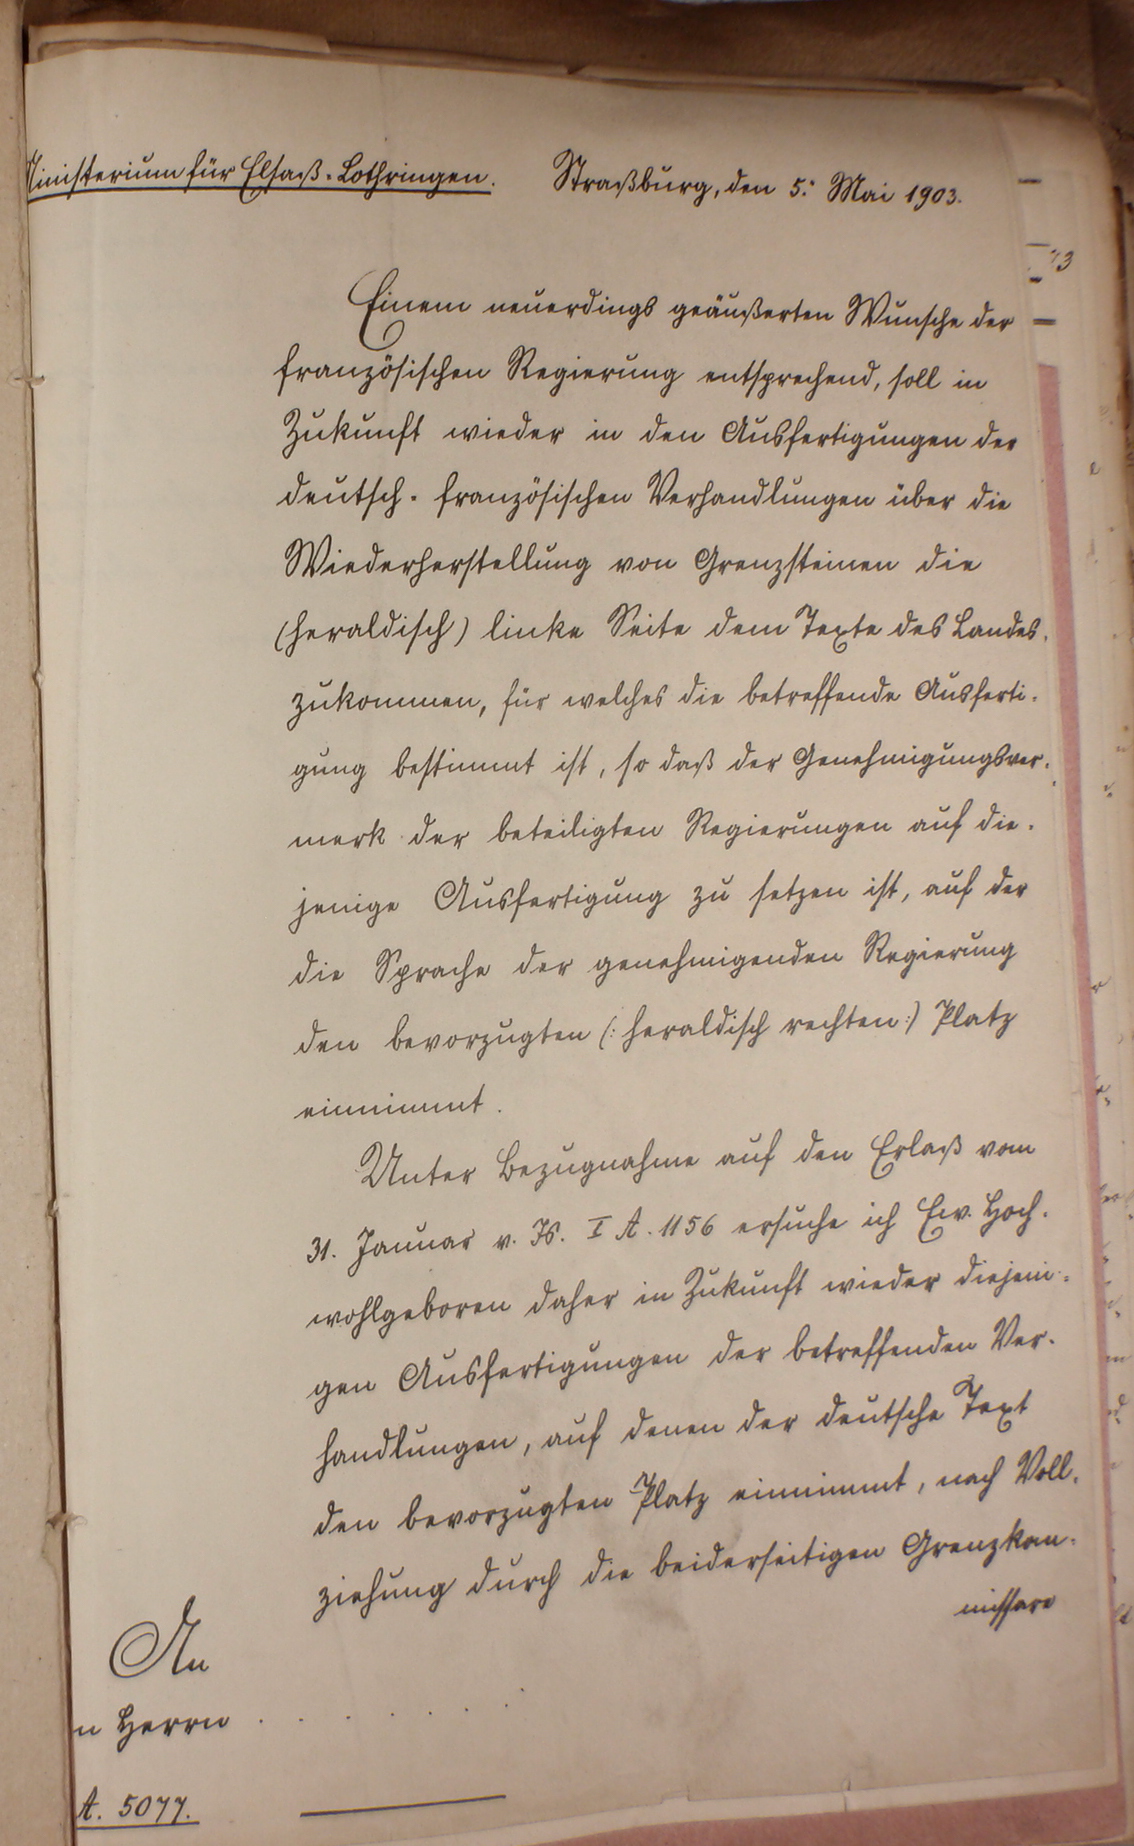 Ministerium für Elsaß-Lothringen.
Straßburg, den 5. Mai 1903.
Einem neuerdings geäußerten Wunsche der
französischen Regierung entsprechend, soll in
Zukunft wieder in den Ausfertigungen der
deutsch-französischen Verhandlungen über die
Wiederherstellung von Grenzsteinen die
(heraldisch) linke Seite dem Texte des Landes
zukommen, für welches die betreffende Ausferti-
gung bestimmt ist, so daß der Genehmigungsver-
merk der beteiligten Regierungen auf die-
jenige Ausfertigung zu setzen ist, auf der
die Sprache der genehmigenden Regierung
den bevorzugten (: heraldisch rechten :) Platz
einnimmt.
Unter Bezugnahme auf den Erlaß vom
31. Januar v. Js. I A. 1156 ersuche ich Ew. Hoch-
wohlgeboren daher in Zukunft wieder diejeni-
gen Ausfertigungen der betreffenden Ver-
handlungen, auf denen der deutsche Text
den bevorzugten Platz einnimmt, nach Voll-
ziehung durch die beiderseitigen Grenzkom-
missare
An
n Herrn . . . . . . .
A. 5077.